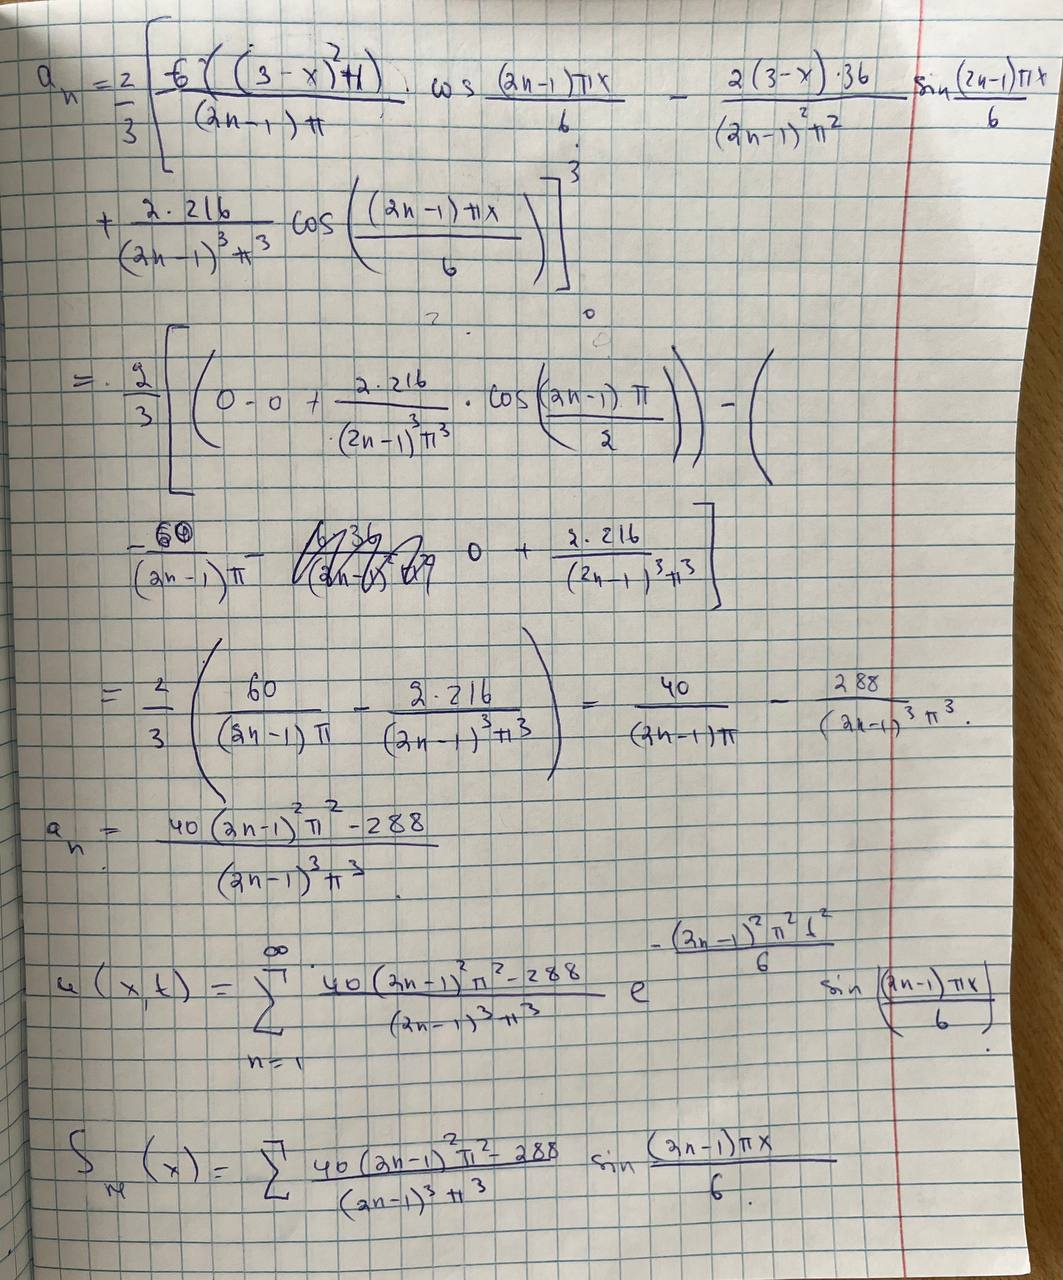 a_n = 2/3 [ -6((3-x)²+1)/((2n-1)π) · cos (2n-1)πx/6 - 2(3-x)·36/((2n-1)²π²) sin (2n-1)πx/6
+ 2·216/((2n-1)³π³) cos((2n-1)πx/6) ]³
= 2/3 [ (0 - 0 + 2·216/((2n-1)³π³) · cos((2n-1)π/2)) - (
-60/((2n-1)π) - 0 + 2·216/((2n-1)³π³) ]
= 2/3 ( 60/((2n-1)π) - 2·216/((2n-1)³π³) ) = 40/((2n-1)π) - 288/((2n-1)³π³).
a_n = (40(2n-1)²π² - 288)/((2n-1)³π³)
u(x,t) = ∑_{n=1}^∞ (40(2n-1)²π² - 288)/((2n-1)³π³) e^{-(2n-1)²π²t²/6} sin((2n-1)πx/6)
S (x) = ∑ (40(2n-1)²π² - 288)/((2n-1)³π³) sin (2n-1)πx/6.